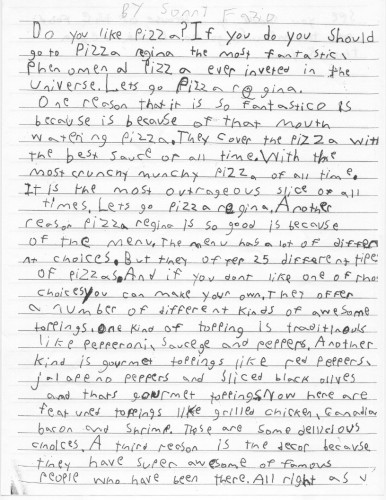 BY Sonny Fazio
Do you like Pizza? If you do you should
go to Pizza regina the most fantastic,
Phenomenal Pizza ever inveted in the
universe. Lets go Pizza regina.
One reason that it is so fantastico is
because is because of that mouth
watering Pizza. They cover the Pizza with
the best sauce of all time. With the
most crunchy munchy Pizza of all time.
It is the most outrageous slice of all
times. Lets go Pizza regina. Another
reason Pizza regina is so good is because
of the menu. The menu has a lot of differe
nt choices. But they offer 25 different tipes
of Pizzas. And if you dont like one of thos
choices you can make your own. They offer
a number of different kinds of awesome
toppings. one kind of topping is traditinouls
like pepperoni, Saucege and peppers. Another
kind is gourmet toppings like red peppers,
jalapeno peppers and sliced black olives
and thats gourmet toppings. Now here are
featured toppings like grilled chicken, Canadian
bacon and shrimp. Those are some dellicious
choices. A third reason is the decor because
they have super awesome of famous
people who have been there. All right as